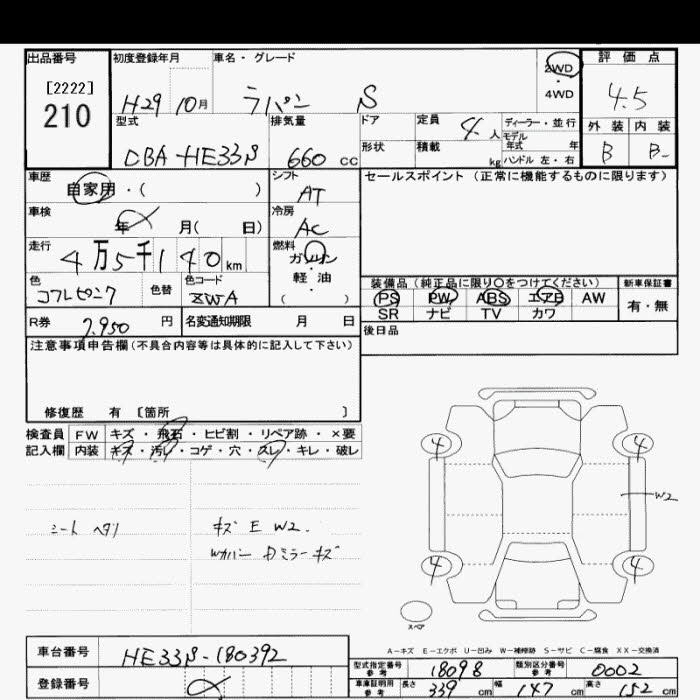 出品番号 初度登録年月 車名・グレード 2WD・4WD 評価点
[2222]
210
H29 10月 ラパン S 4.5
型式 排気量 ドア 定員 4人 ディーラー・並行 外装 内装
モデル年式 年
DBA-HE33S 660 cc 形状 積載 kg ハンドル 左・右 B B-
車歴 自家用・( ) シフト AT セールスポイント (正常に機能するものに限ります)
車検 年 月( 日) 冷房 AC
走行 4万5千140km 燃料 ガソリン・軽油 ( )
装備品 (純正品に限り○をつけてください) 新車保証書
色 コフレピンク 色替 色コード ZWA PS PW ABS エアB AW 有・無
SR ナビ TV カワ
R券 7,950 円 名変通知期限 月 日 後日品
注意事項申告欄(不具合内容等は具体的に記入して下さい)
修復歴 有 [箇所 ]
検査員 FW キズ・飛石・ヒビ割・リペア跡・×要
記入欄 内装 キズ・汚レ・コゲ・穴・スレ・キレ・破レ
4 4
W2
シート ヘタリ キズ E W2.
Wカバー Dミラーキズ
4 4
スペア
A-キズ E-エクボ U-凹み W-補修跡 S-サビ C-腐食 XX-交換済
車台番号 HE33S-180392
型式指定番号 参考 18098 類別区分番号 参考 0002
登録番号
車庫証明用 参考 長さ 339 cm 幅 147 cm 高さ 152 cm